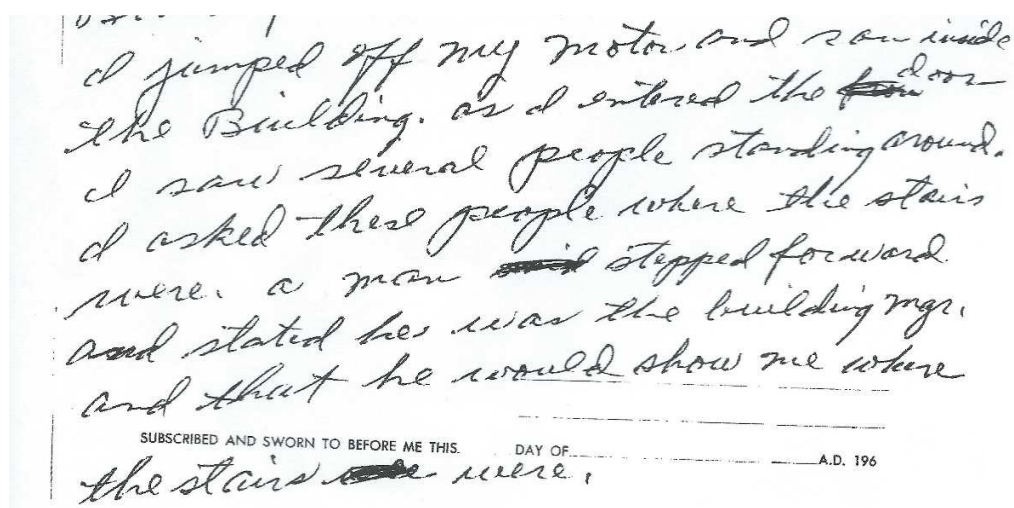 I jumped off my motor and ran inside
the Building. as I entered the door
I saw several people standing around.
I asked these people where the stairs
were. a man stepped forward
and stated he was the building mgr.
and that he would show me where
SUBSCRIBED AND SWORN TO BEFORE ME THIS. DAY OF A.D. 196
the stairs were.